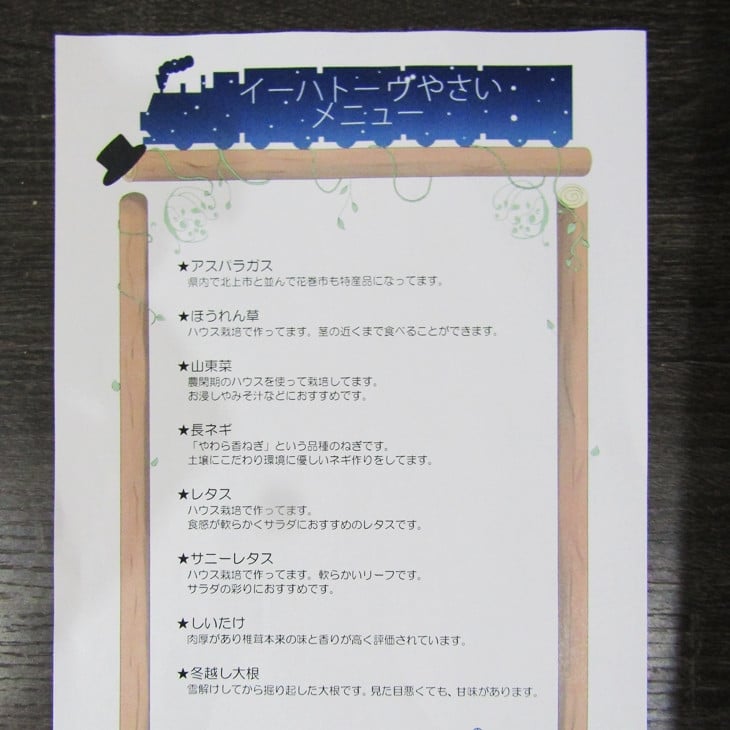 イーハトーヴやさい
メニュー
★アスパラガス
県内で北上市と並んで花巻市も特産品になってます。
★ほうれん草
ハウス栽培で作ってます。茎の近くまで食べることができます。
★山東菜
農閑期のハウスを使って栽培してます。
お浸しやみそ汁などにおすすめです。
★長ネギ
「やわら香ねぎ」という品種のねぎです。
土壌にこだわり環境に優しいネギ作りをしてます。
★レタス
ハウス栽培で作ってます。
食感が軟らかくサラダにおすすめのレタスです。
★サニーレタス
ハウス栽培で作ってます。軟らかいリーフです。
サラダの彩りにおすすめです。
★しいたけ
肉厚があり椎茸本来の味と香りが高く評価されています。
★冬越し大根
雪解けしてから掘り起した大根です。見た目悪くても、甘味があります。